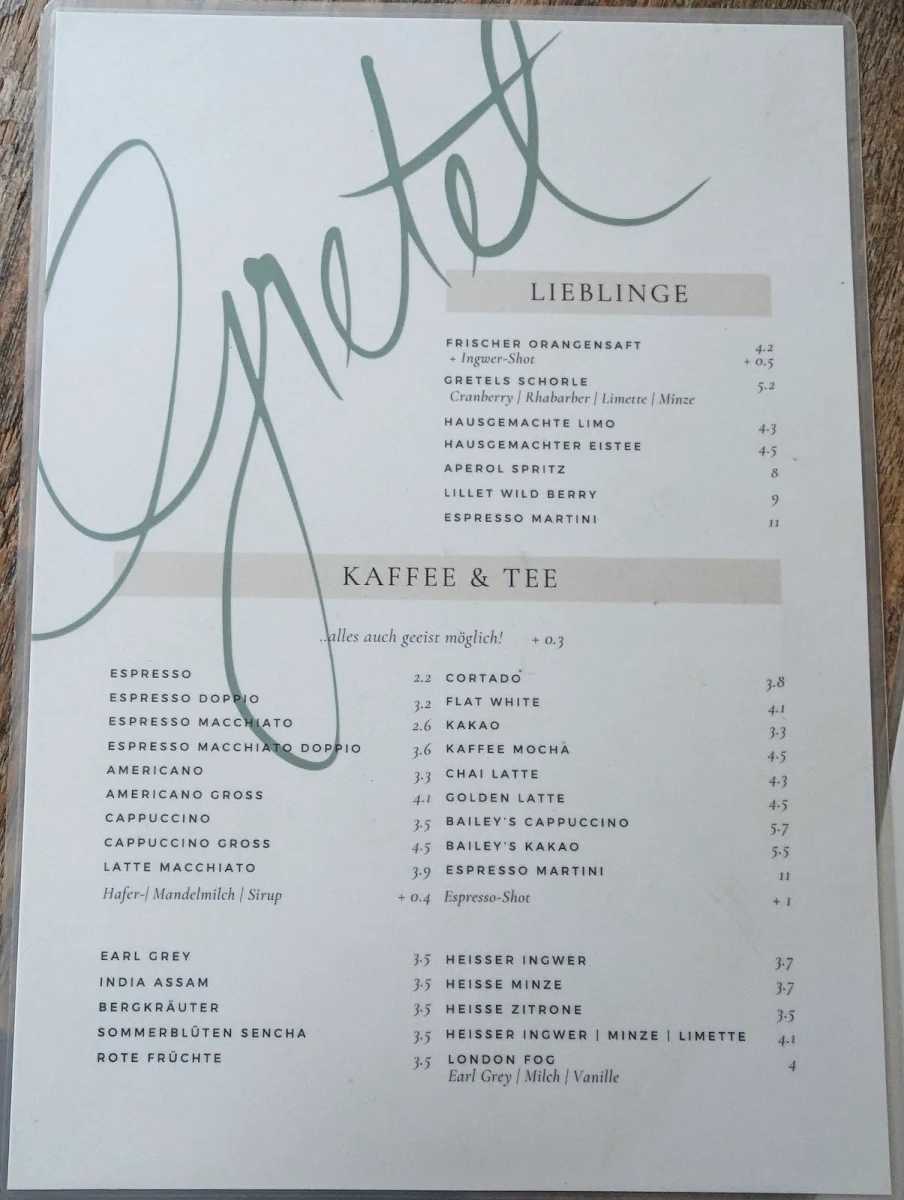 Gretel
LIEBLINGE
FRISCHER ORANGENSAFT 4.2
+ Ingwer-Shot + 0.5
GRETELS SCHORLE 5.2
Cranberry | Rhabarber | Limette | Minze
HAUSGEMACHTE LIMO 4.3
HAUSGEMACHTER EISTEE 4.5
APEROL SPRITZ 8
LILLET WILD BERRY 9
ESPRESSO MARTINI 11
KAFFEE & TEE
..alles auch geeist möglich! + 0.3
ESPRESSO 2.2
ESPRESSO DOPPIO 3.2
ESPRESSO MACCHIATO 2.6
ESPRESSO MACCHIATO DOPPIO 3.6
AMERICANO 3.3
AMERICANO GROSS 4.1
CAPPUCCINO 3.5
CAPPUCCINO GROSS 4.5
LATTE MACCHIATO 3.9
Hafer-| Mandelmilch | Sirup + 0.4
CORTADO 3.8
FLAT WHITE 4.1
KAKAO 3.3
KAFFEE MOCHA 4.5
CHAI LATTE 4.3
GOLDEN LATTE 4.5
BAILEY'S CAPPUCCINO 5.7
BAILEY'S KAKAO 5.5
ESPRESSO MARTINI 11
Espresso-Shot + 1
EARL GREY 3.5
INDIA ASSAM 3.5
BERGKRÄUTER 3.5
SOMMERBLÜTEN SENCHA 3.5
ROTE FRÜCHTE 3.5
HEISSER INGWER 3.7
HEISSE MINZE 3.7
HEISSE ZITRONE 3.5
HEISSER INGWER | MINZE | LIMETTE 4.1
LONDON FOG 4
Earl Grey | Milch | Vanille